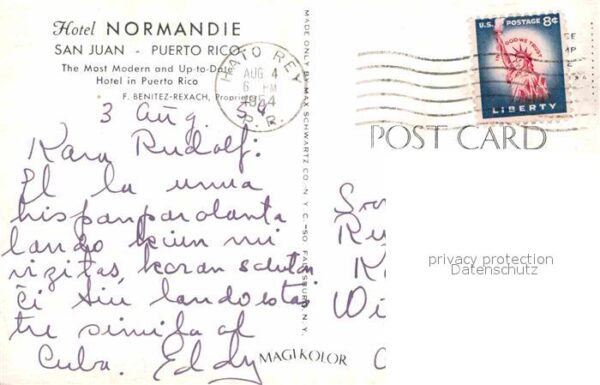 Hotel NORMANDIE
SAN JUAN - PUERTO RICO
The Most Modern and Up-to-Date
Hotel in Puerto Rico
F. BENITEZ-REXACH, Proprietor
HATO REY
AUG 4
6 PM
1954
P. R.
3 Aug. 54
Kara Rudolf:
El la unua
hispanparolanta
lando kiun mi
vizitas, koran saluton
Ĉi tiu lando estas
tre simila al
Cuba. Eddy
MADE ONLY BY MAX SCHWARTZ CO. N. Y. C.
MAGIKOLOR
U.S. POSTAGE 8¢
IN GOD WE TRUST
LIBERTY
POST CARD
privacy protection
Datenschutz